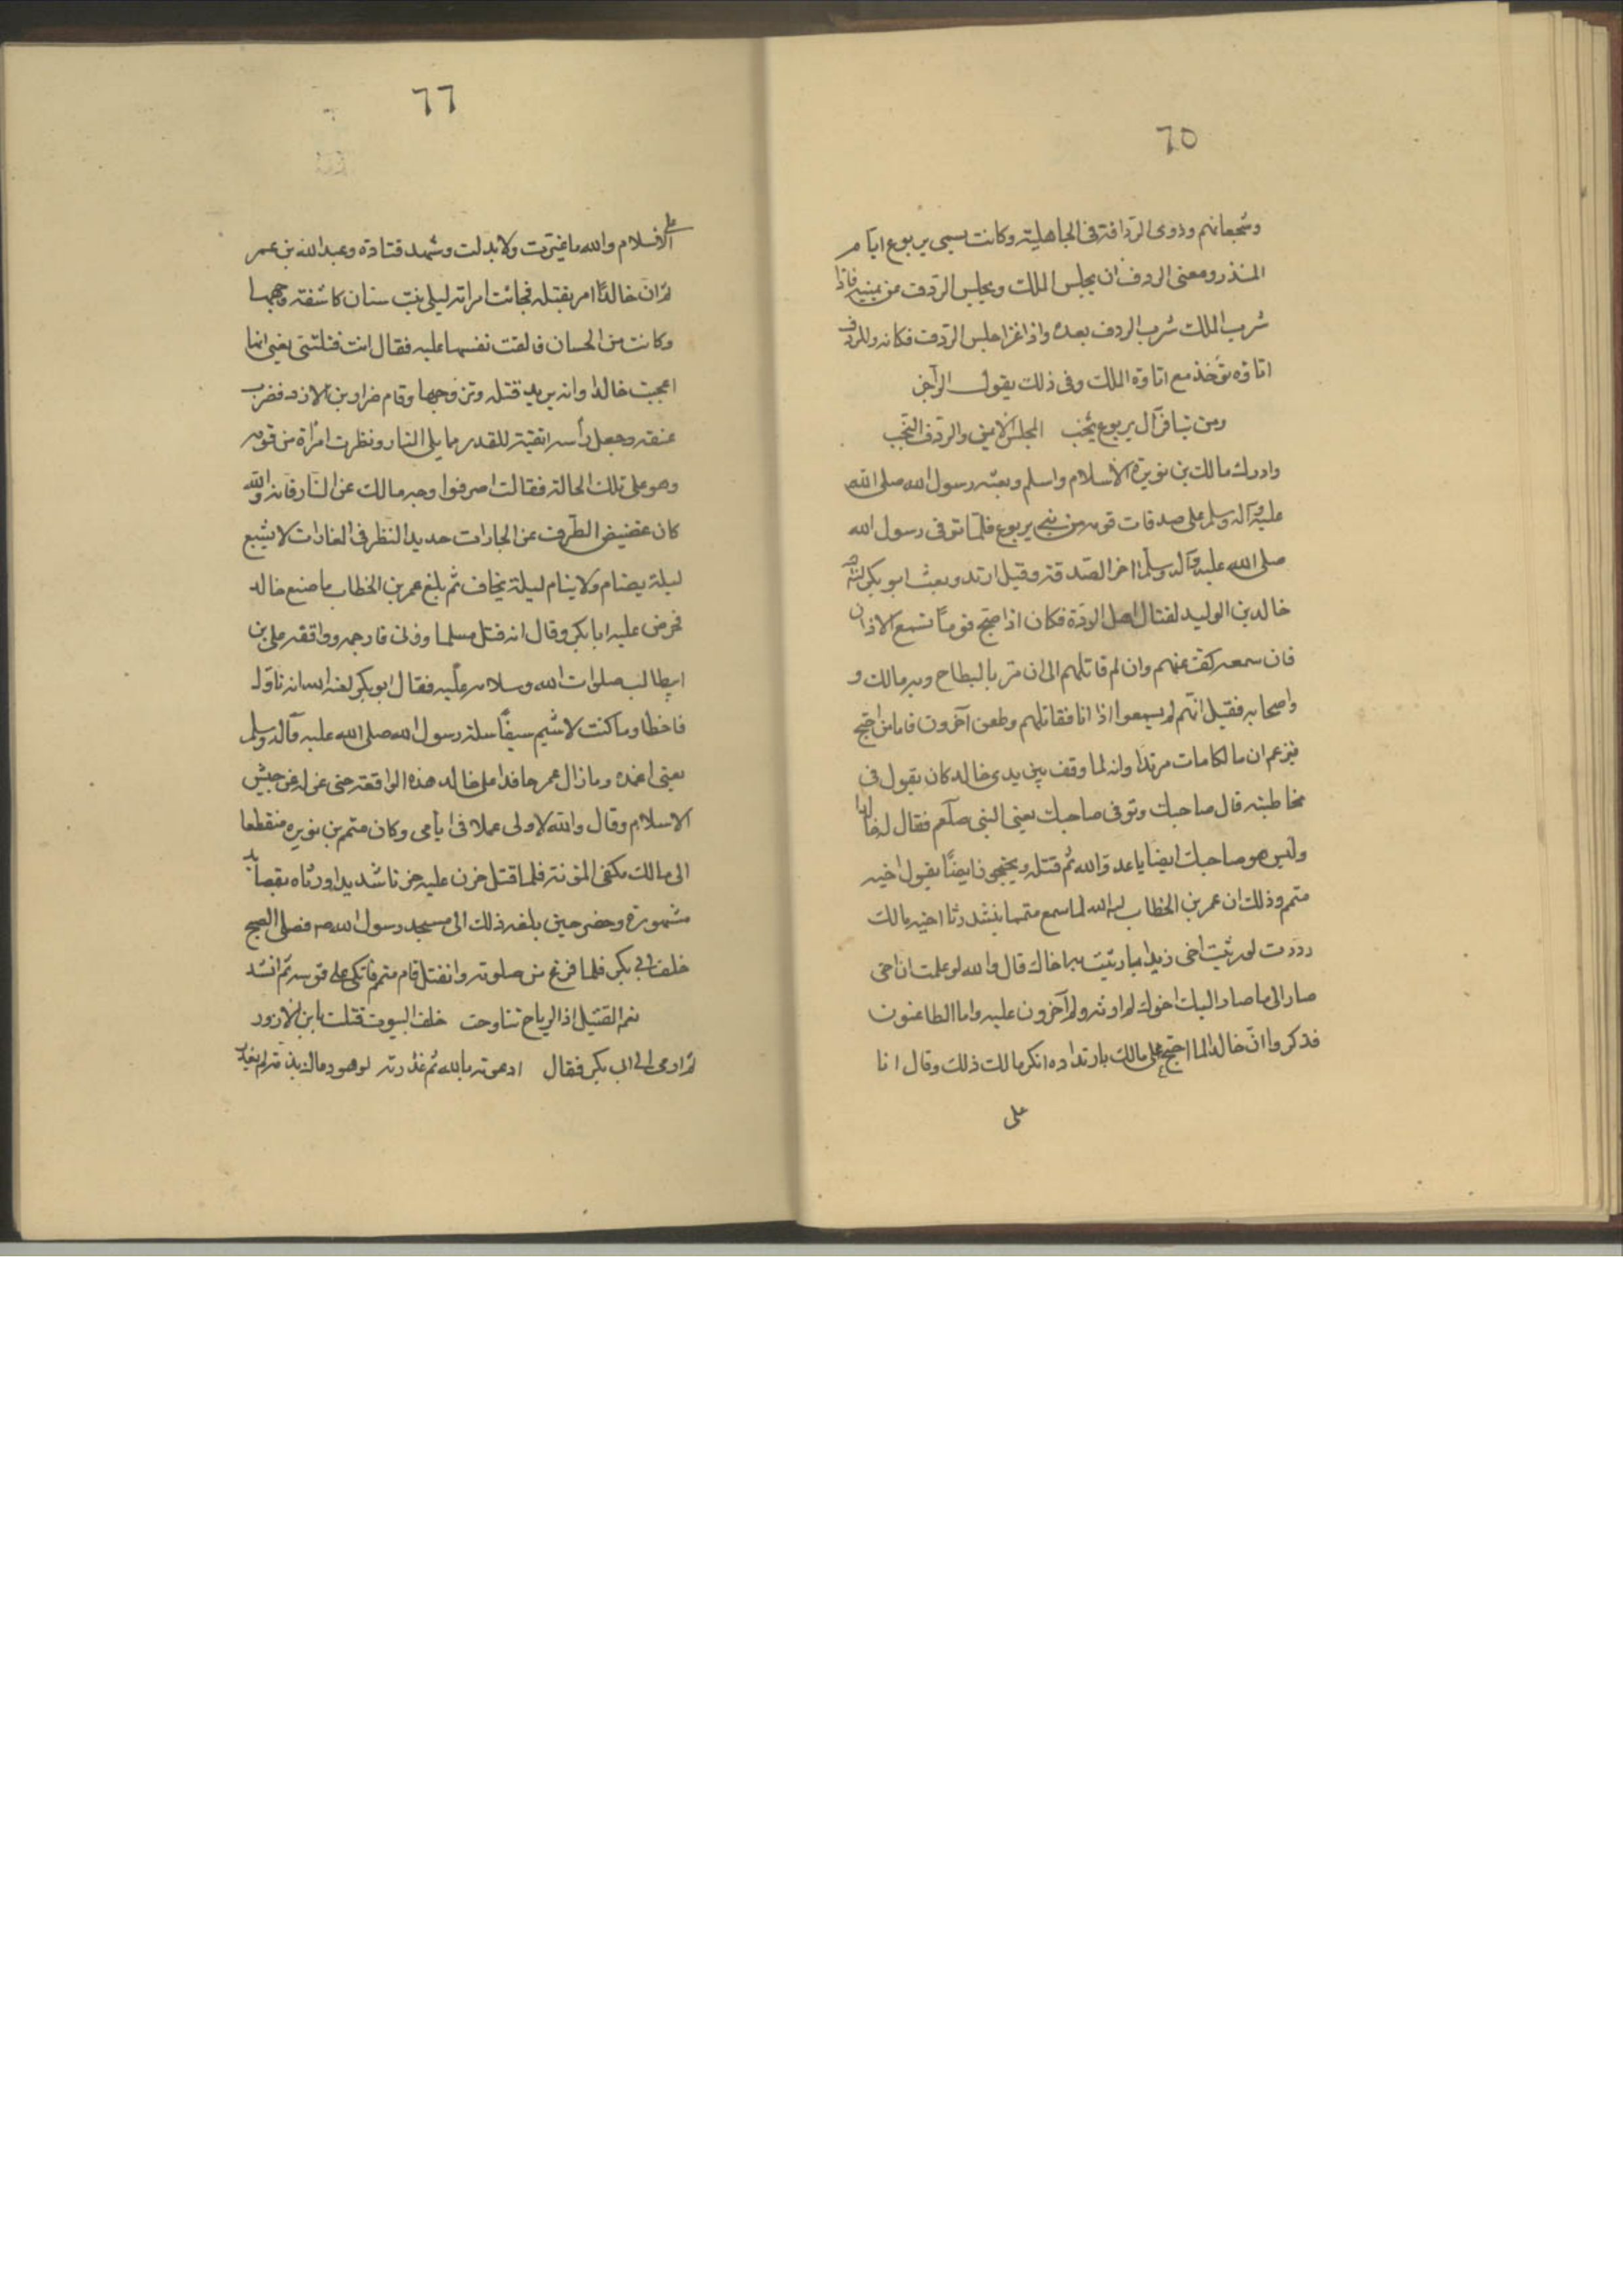 ٦٥
وشجعانهم وذوى الردافة فى الجاهلية وكانت بسبى يربوع ايام
المنذر ومعنى الردف ان يجلس الملك ويجلس الردف من يمينه فاذا
شرب الملك شرب الردف بعده واذا غزا جلس الردف فكانه وللردف
اتاوه تؤخذ مع اتاوة الملك وفى ذلك يقول الراجز
ومن تنافر آل يربوع يخب المجلس الايمن والردف النجب
وادرك مالك بن نويرة الاسلام واسلم وبعثه رسول الله صلى الله
عليه وآله وسلم على صدقات قومه من بنى يربوع فلما توفى رسول الله
صلى الله عليه وآله وسلم اخر الصدقة وقيل ارتد وبعث ابو بكر
خالد بن الوليد لقتال اهل الردة فكان اذا صبح قوما تسمع الاذان
فان سمعه كف عنهم وان لم قاتلهم الى ان مر بالبطاح وبه مالك و
واصحابه فقيل انهم لم يسمعوا اذانا فقاتلهم وطعن آخرون فاما من احتج
فيزعم ان مالكا مات مرتدا وانه لما وقف بين يدى خالد كان يقول فى
مخاطبته قال صاحبك وتوفى صاحبك يعنى النبى صلعم فقال له خالد
وليس هو صاحبك ايضا يا عدو الله ثم قتله ويحتجون ايضا بقول اخيه
متمم وذلك ان عمر بن الخطاب لما سمع متمما ينشد رثا اخيه مالك
وددت لو رثيت اخى زيدا بما رثيت به اخاك قال والله لو علمت ان اخى
صار الى ما صار اليه اخوك لم ارثه ولم آخرون عليه واما الطاعنون
فذكروا ان خالدا لما احتج على مالك بارتداده انكر مالك ذلك وقال انا
على
٦٦
على الاسلام والله ما غيرت ولا بدلت وشهد قتادة وعبد الله بن عمر
ثم ان خالدا امر بقتله فجائت امراته ليلى بنت سنان كاشفة وجهها
وكانت من الحسان فالقت نفسها عليه فقال انت قتلتنى يعنى انها
اعجبت خالدا وانه يريد قتله وتزوجها وقام ضرار بن الازور فضرب
عنقه وجعل رأسه اثفية للقدر مما يلى النار ونظرت امرأة من قومه
وهو على تلك الحالة فقالت اصرفوا وجه مالك عن النار فانه والله
كان غضيض الطرف عن الجارات حديد النظر فى الغارات لا يشبع
ليلة يضام ولا ينام ليلة يخاف ثم بلغ عمر بن الخطاب ما صنع خالد
فحرض عليه ابا بكر وقال انه قتل مسلما وزنى فارجمه ووافقه على بن
ابيطالب صلوات الله وسلامه عليه فقال ابو بكر انه تاول
فاخطا وما كنت لاشيم سيفا سله رسول الله صلى الله عليه وآله وسلم
يعنى اغمده وما زال عمر حاقدا على خالد هذه الواقعة حتى عزله عن جيش
الاسلام وقال والله لا ولى عملا فى ايامى وكان متمم بن نويره منقطعا
الى مالك مكفى المؤنة فلما قتل حزن عليه حزنا شديدا ورثاه بقصايد
مشهورة وحضر حين بلغه ذلك الى مسجد رسول الله صم فصلى الصبح
خلف ابى بكر فلما فرغ من صلوته وانفتل قام متمم فاتكى على قوسه ثم انشد
نعم القتيل اذا الرياح تناوحت خلف البيوت قتلت يا بن الازور
ثم اومى الى ابى بكر فقال ادعوته بالله ثم غدرته لو هو دعاك بذمة لم يغدر